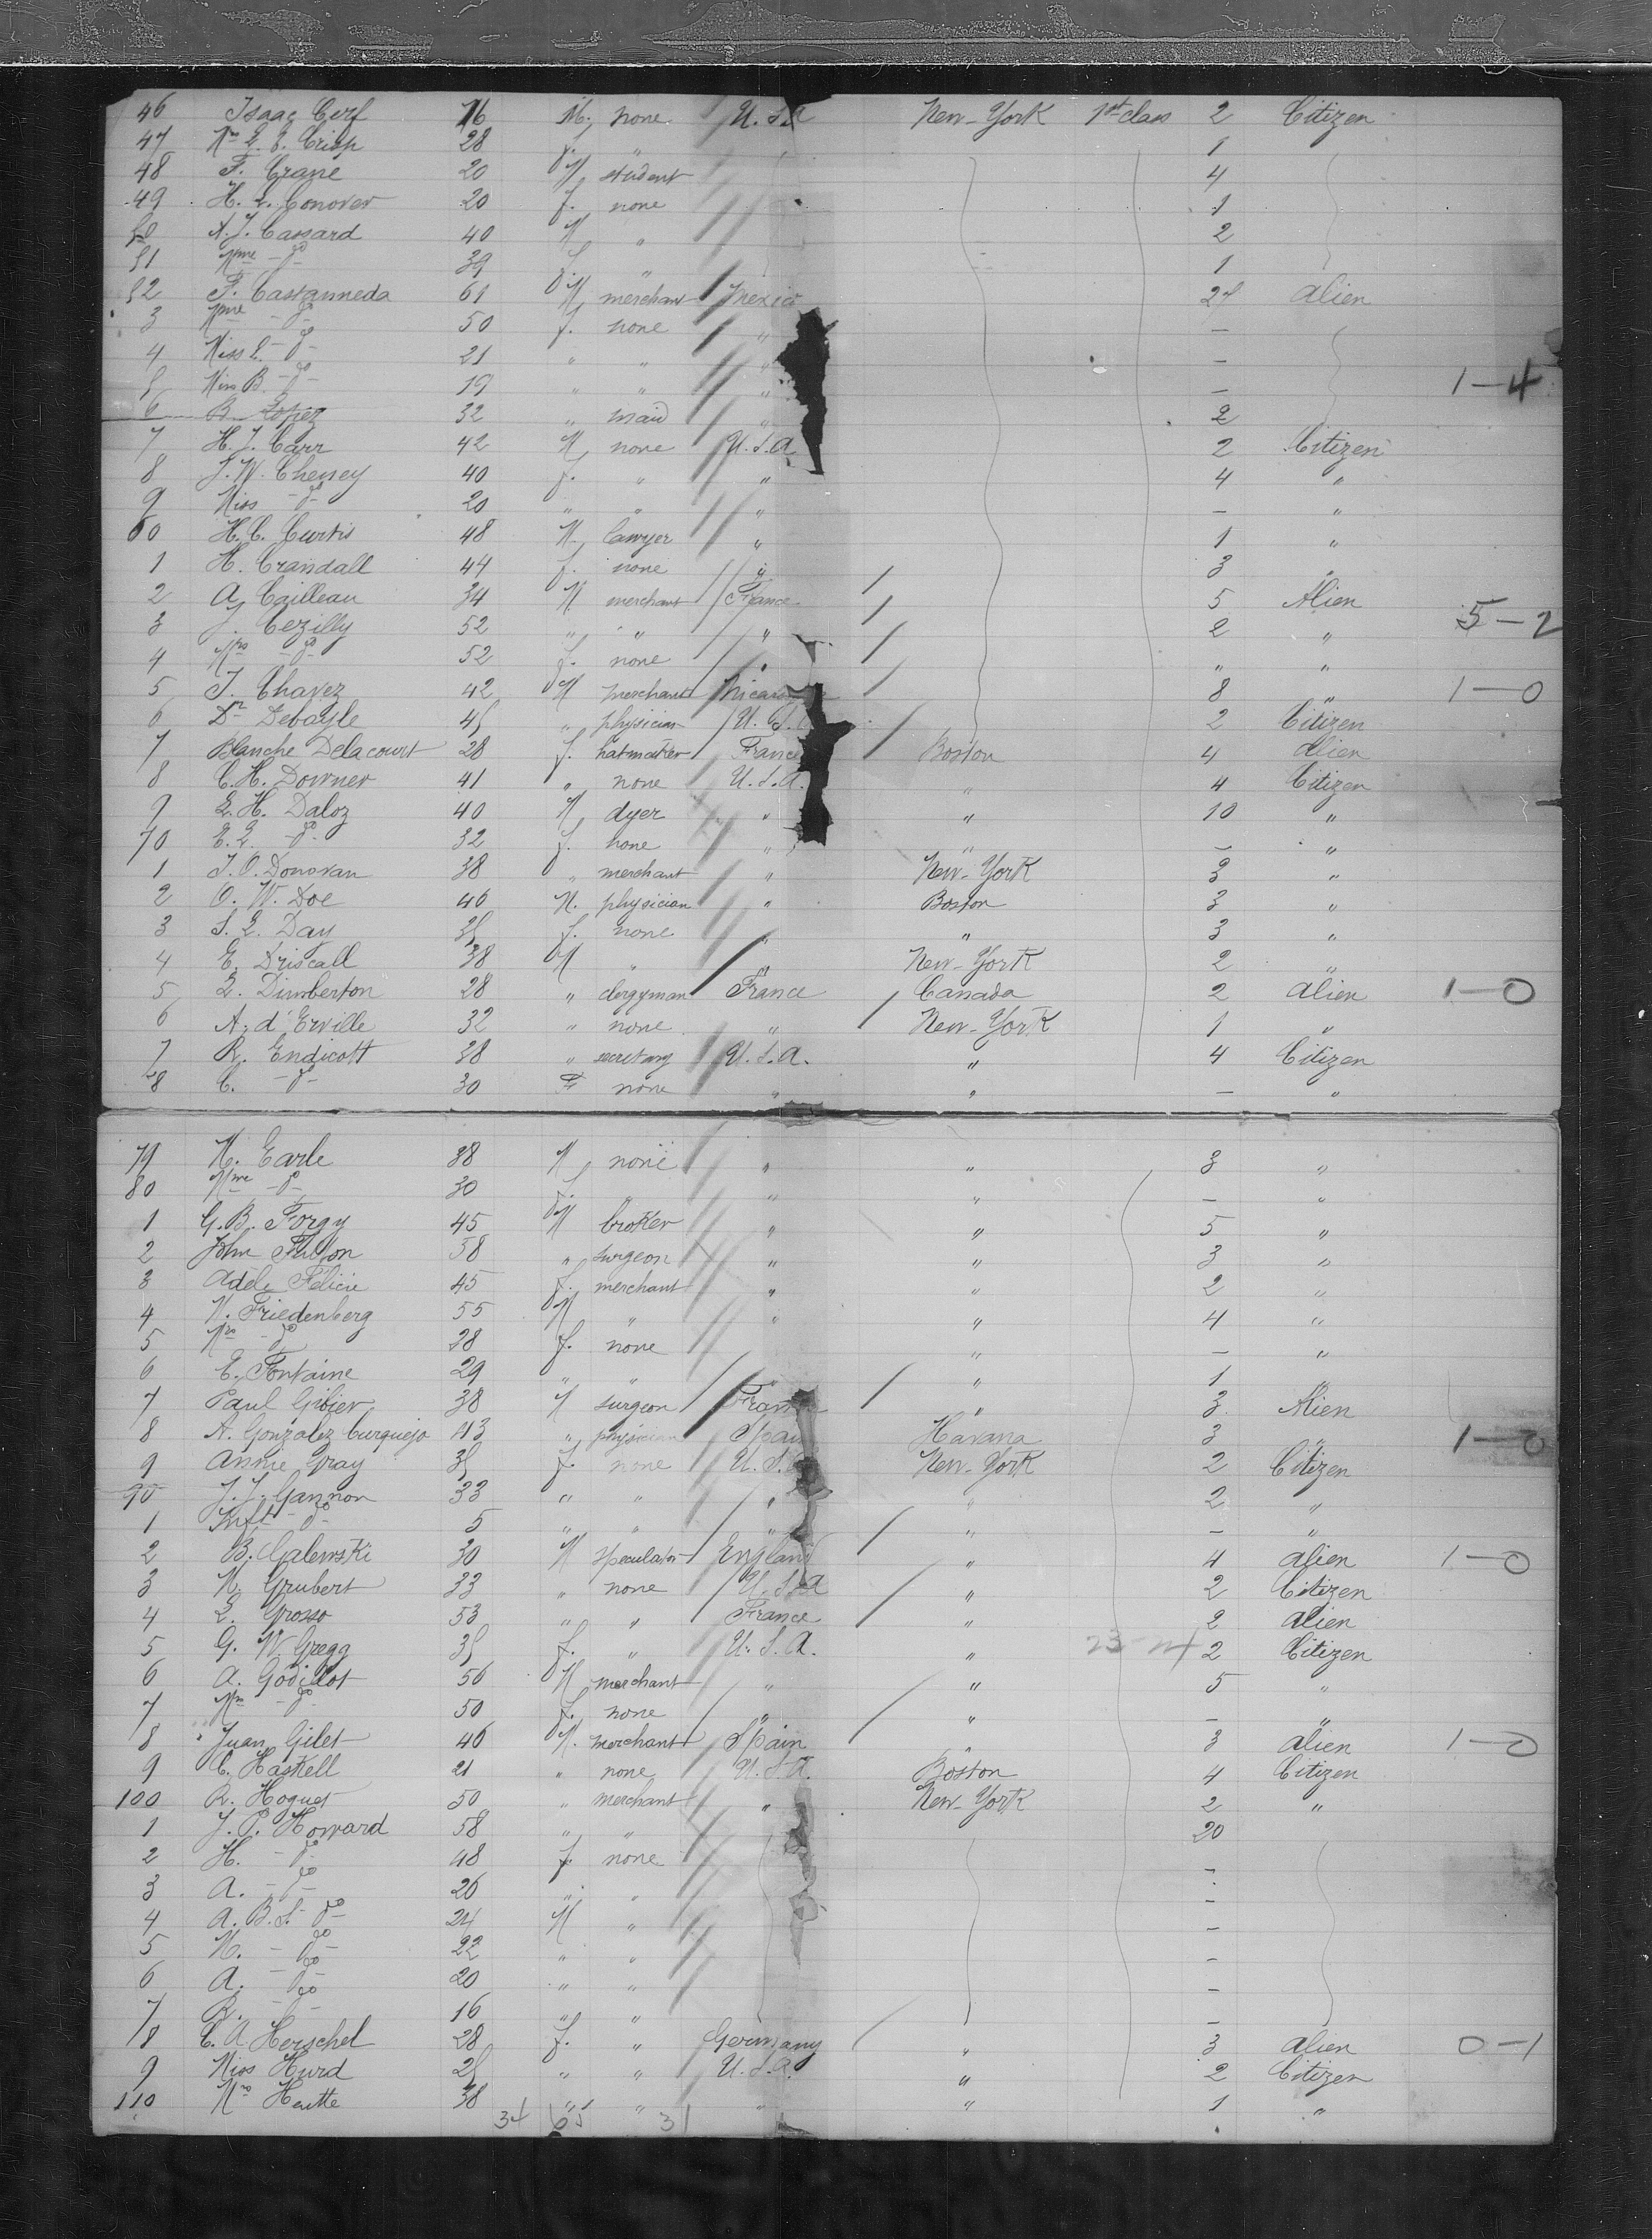 46 Isaac Cerf 76 M. none U.S.A New-York 1st class 2 Citizen
47 Mrs E. E. Crisp 28 f. " 1
48 F. Crane 20 M student 4
49 H. L. Conover 20 f. none 1
50 A. J. Cassard 40 M " 2
51 Mme - do 39 f. " 1
52 F. Castanneda 61 M merchant Mexico 21 Alien
3 Mme - do - 50 f. none " —
4 Miss E. - do - 21 " " " —
5 Miss B. - do - 19 " " " — 1-4
6 B. Lopez 32 " maid " 2
7 H. J. Carr 42 M none U.S.A 2 Citizen
8 J. W. Cheney 40 f. " " 4 "
9 Miss - do - 20 " " " — "
60 H. C. Curtis 48 M. lawyer " 1 "
1 H. Crandall 44 f. none " 3 "
2 A. Cailleau 34 M. merchant France 5 Alien
3 J. Cezilly 52 " " " 2 " 5-2
4 Mrs - do 52 f. none " " "
5 J. Chavez 42 M merchant Nicara 8 " 1-0
6 Dr Debayle 45 " physician U.S. 2 Citizen
7 Blanche Delacourt 28 f. hatmaker France Boston 4 Alien
8 C. H. Downer 41 " none U.S.A. " 4 Citizen
9 E. H. Daloz 40 M dyer " " 10 "
70 E. E. - do - 32 f. none " " — "
1 J. O. Donovan 38 " merchant " New-York 3 "
2 O. W. Doe 46 M. physician " Boston 3 "
3 S. E. Day 35 f. none " " 3 "
4 E. Driscall 38 M " " New-York 2 "
5 E. Dumberton 28 " clergyman France Canada 2 Alien 1-0
6 A. d'Erville 32 " none " New-York 1 "
7 R. Endicott 38 " secretary U.S.A. " 4 Citizen
78 C. - do - 30 F none " " — "
79 M. Earle 38 M none " " 3 "
80 Mme - do - 30 f. " " " — "
1 G. B. Forgy 45 M broker " " 5 "
2 John Fulton 58 " surgeon " " 3 "
3 Adele Felicie 45 f. merchant " " 2 "
4 W. Friedenberg 55 M " " " 4 "
5 Mrs - do 28 f. none " — "
6 E. Fontaine 29 " " " 1 "
7 Paul Gibier 38 M surgeon France " 3 Alien
8 A. Gonzalez Curquejo 43 " physician Spain Havana 3 " 1-0
9 Annie Gray 35 f. none U.S. New-York 2 Citizen
90 J. J. Gannon 33 " " " " 2 "
1 Inft - do - 5 " " " " — "
2 B. Galewski 30 M speculator England " 4 Alien 1-0
3 M. Grubert 33 " none U.S.A " 2 Citizen
4 E. Grosso 53 " " France " 2 Alien
5 G. W. Gregg 35 f. " U.S.A. " 2 Citizen
6 A. Godillot 56 M merchant " " 5 "
7 Mrs - do 50 f. none " " — "
8 Juan Gilet 46 M. merchant Spain " 3 Alien 1-0
9 C. Haskell 21 " none U.S.A. Boston 4 Citizen
100 R. Hoguet 50 " merchant " New-York 2 "
1 J. P. Howard 58 " " 20
2 H. - do 48 f. none —
3 A. - do - 26 " " —
4 A. B. S. do - 24 M " —
5 M. - do - 22 " " —
6 A. - do - 20 " " —
7 R. - do - 16 " " —
8 C. A. Herschel 28 f. " Germany " 3 Alien 0-1
9 Miss Hurd 25 " " U.S.A. " 2 Citizen
110 Mrs Heutte 38 " " " " 1 "
34 65 31